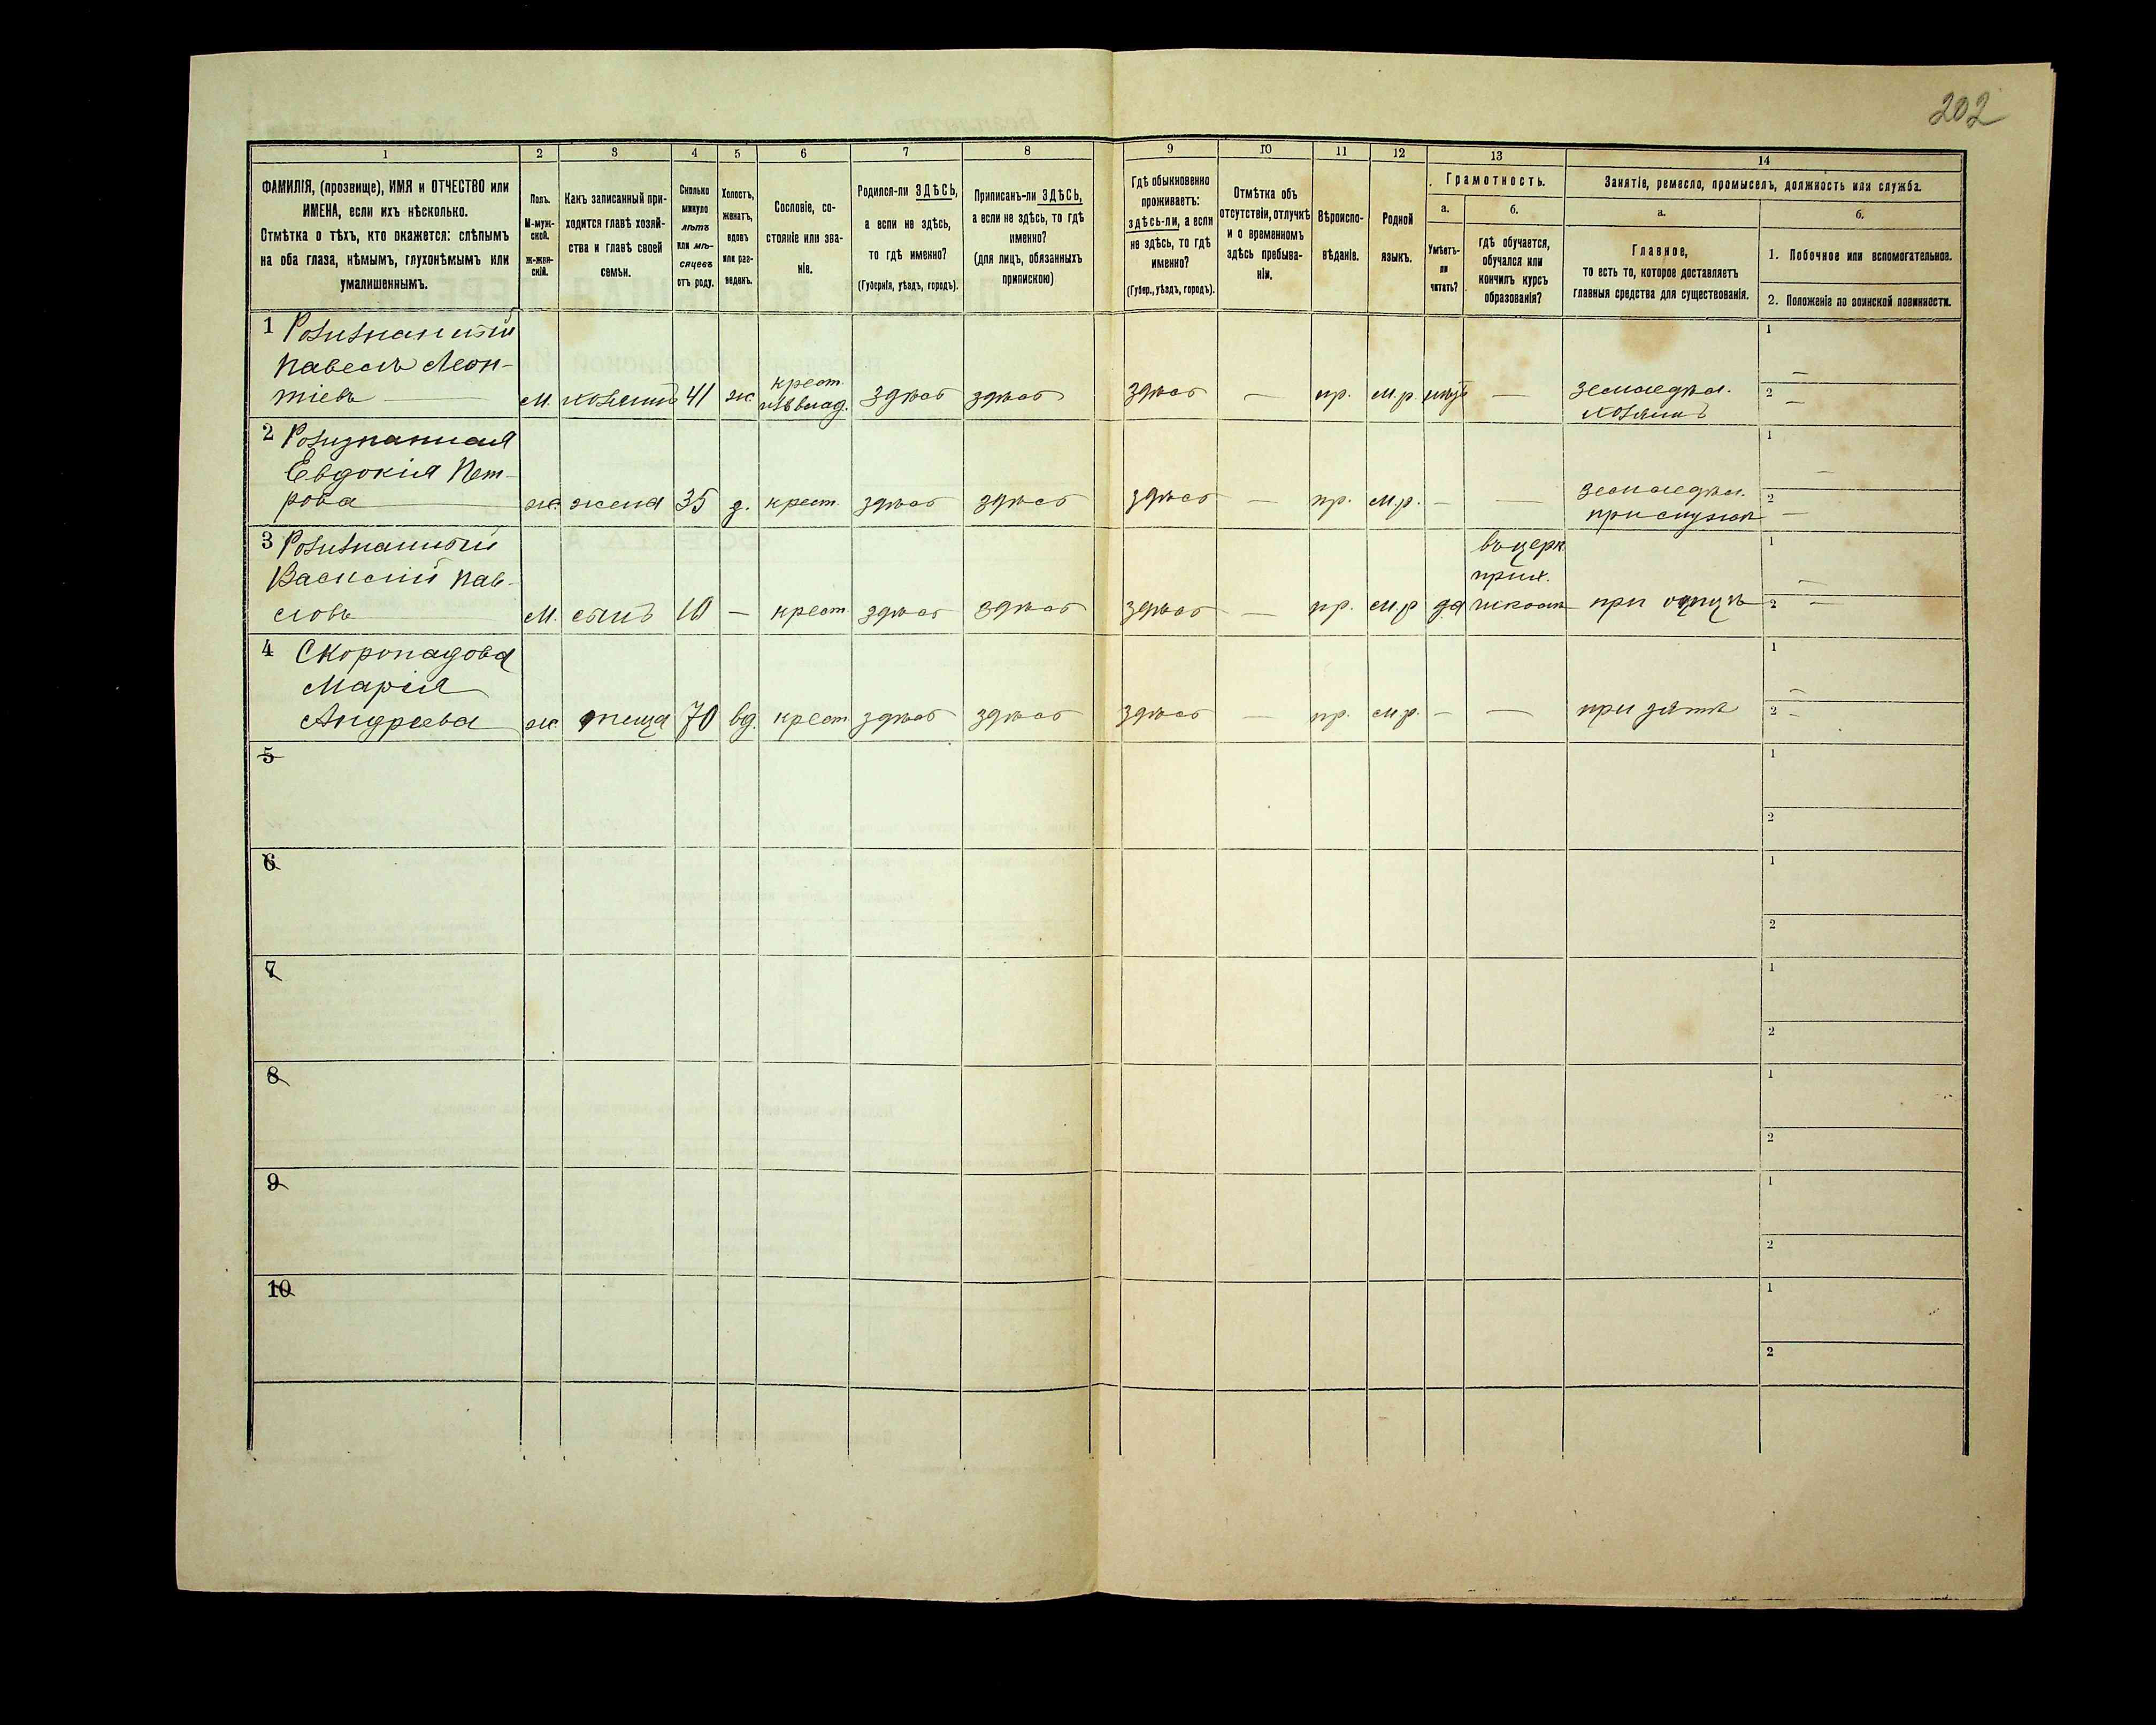 202
1 2 3 4 5 6 7 8 9 10 11 12 13 14
ФАМИЛІЯ, (прозвище), ИМЯ и ОТЧЕСТВО или
ИМЕНА, если ихъ нѣсколько.
Отмѣтка о тѣхъ, кто окажется: слѣпымъ
на оба глаза, нѣмымъ, глухонѣмымъ или
умалишеннымъ.
Полъ.
М-муж-
ской.
Ж-жен-
скій.
Какъ записанный при-
ходится главѣ хозяй-
ства и главѣ своей
семьи.
Сколько
минуло
лѣтъ
или мѣ-
сяцевъ
отъ роду.
Холостъ,
женатъ,
вдовъ
или раз-
веденъ.
Сословіе, со-
стояніе или зва-
ніе.
Родился-ли ЗДѢСЬ,
а если не здѣсь,
то гдѣ именно?
(Губернія, уѣздъ, городъ).
Приписанъ-ли ЗДѢСЬ,
а если не здѣсь, то гдѣ
именно?
(для лицъ, обязанныхъ
припискою)
Гдѣ обыкновенно
проживаетъ:
здѣсь-ли, а если
не здѣсь, то гдѣ
именно?
(Губер., уѣздъ, городъ).
Отмѣтка объ
отсутствіи, отлучкѣ
и о временномъ
здѣсь пребыва-
ніи.
Вѣроиспо-
вѣданіе.
Родной
языкъ.
Грамотность.
а.
Умѣетъ-
ли
читать?
б.
гдѣ обучается,
обучался или
кончилъ курсъ
образованія?
Занятіе, ремесло, промыселъ, должность или служба.
а.
Главное,
то есть то, которое доставляетъ
главныя средства для существованія.
б.
1. Побочное или вспомогательное.
2. Положеніе по воинской повинности.
1
Павелъ Леон-
тіевъ
М. хозяинъ 41 ж. крест.
здѣсь здѣсь здѣсь — пр. м.р. — земледѣл.
хозяинъ
1 —
2 —
2
Евдокія Пет-
рова
ж. жена 35 з. крест. здѣсь здѣсь здѣсь — пр. м.р. — — земледѣл.
при мужѣ
1 —
2 —
3
Василій Пав-
ловъ
М. сынъ 10 — крест здѣсь здѣсь здѣсь — пр. м.р да
въ церк.
прих.
школѣ
при отцѣ
1 —
2 —
4 Скоропадова
Марія
Андреева
ж. теща 70 вд. крест. здѣсь здѣсь здѣсь — пр. м.р. — — при зятѣ
1 —
2 —
5
1
2
6
1
2
7
1
2
8
1
2
9
1
2
10
1
2